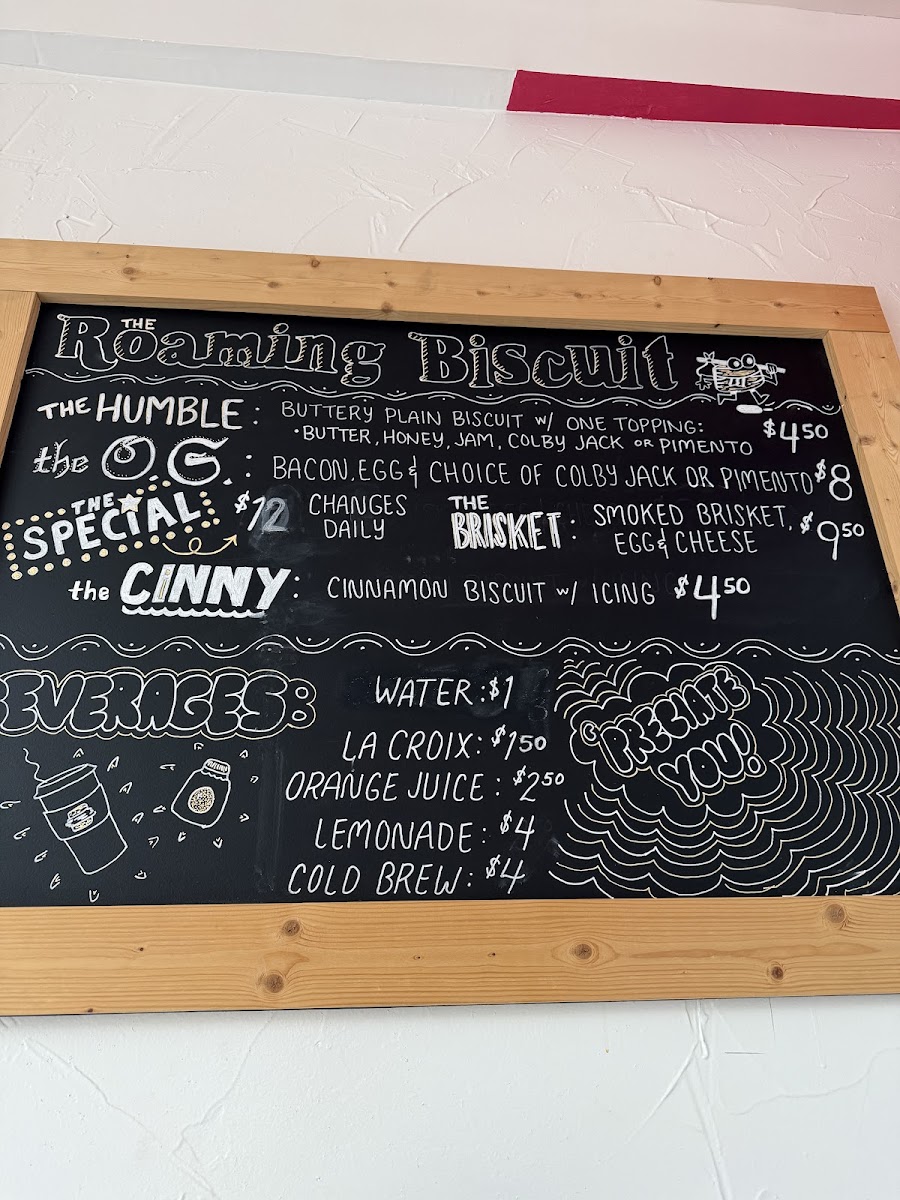 THE
Roaming Biscuit
THE HUMBLE: BUTTERY PLAIN BISCUIT W/ ONE TOPPING: $4.50
•BUTTER, HONEY, JAM, COLBY JACK OR PIMENTO
the OG.: BACON, EGG & CHOICE OF COLBY JACK OR PIMENTO $8
THE SPECIAL $12 CHANGES DAILY
THE BRISKET: SMOKED BRISKET, EGG & CHEESE $9.50
the CINNY: CINNAMON BISCUIT W/ ICING $4.50
EVERAGES:
WATER: $1
LA CROIX: $1.50
ORANGE JUICE: $2.50
LEMONADE: $4
COLD BREW: $4
'PRECIATE
YOU!